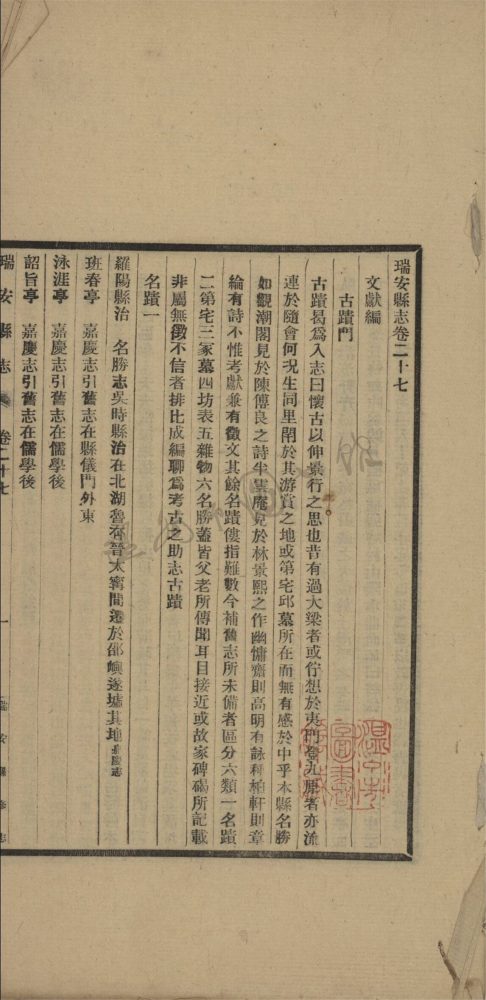 瑞安縣志卷二十七
文獻編
古蹟門
古蹟曷爲入志曰懷古以伸景行之思也昔有過大梁者或佇想於夷門登九原者亦流
連於隨會何況生同里閈於其游賞之地或第宅邱墓所在而無有感於中乎本縣名勝
如觀潮閣見於陳傅良之詩半雲庵見於林景熙之作幽慵齋則高明有詠種柏軒則章
綸有詩不惟考獻兼有徵文其餘名蹟僂指難數今補舊志所未備者區分六類一名蹟
二第宅三冢墓四坊表五雜物六名勝蓋皆父老所傳聞耳目接近或故家碑碣所記載
非屬無徵不信者排比成編聊爲考古之助志古蹟
名蹟一
羅陽縣治 名勝志吳時縣治在北湖魯岙晉太寧間遷於邵嶼遂墟其地嘉慶志
班春亭 嘉慶志引舊志在縣儀門外東
泳涯亭 嘉慶志引舊志在儒學後
韶旨亭 嘉慶志引舊志在儒學後
瑞安縣志 卷二十七 一